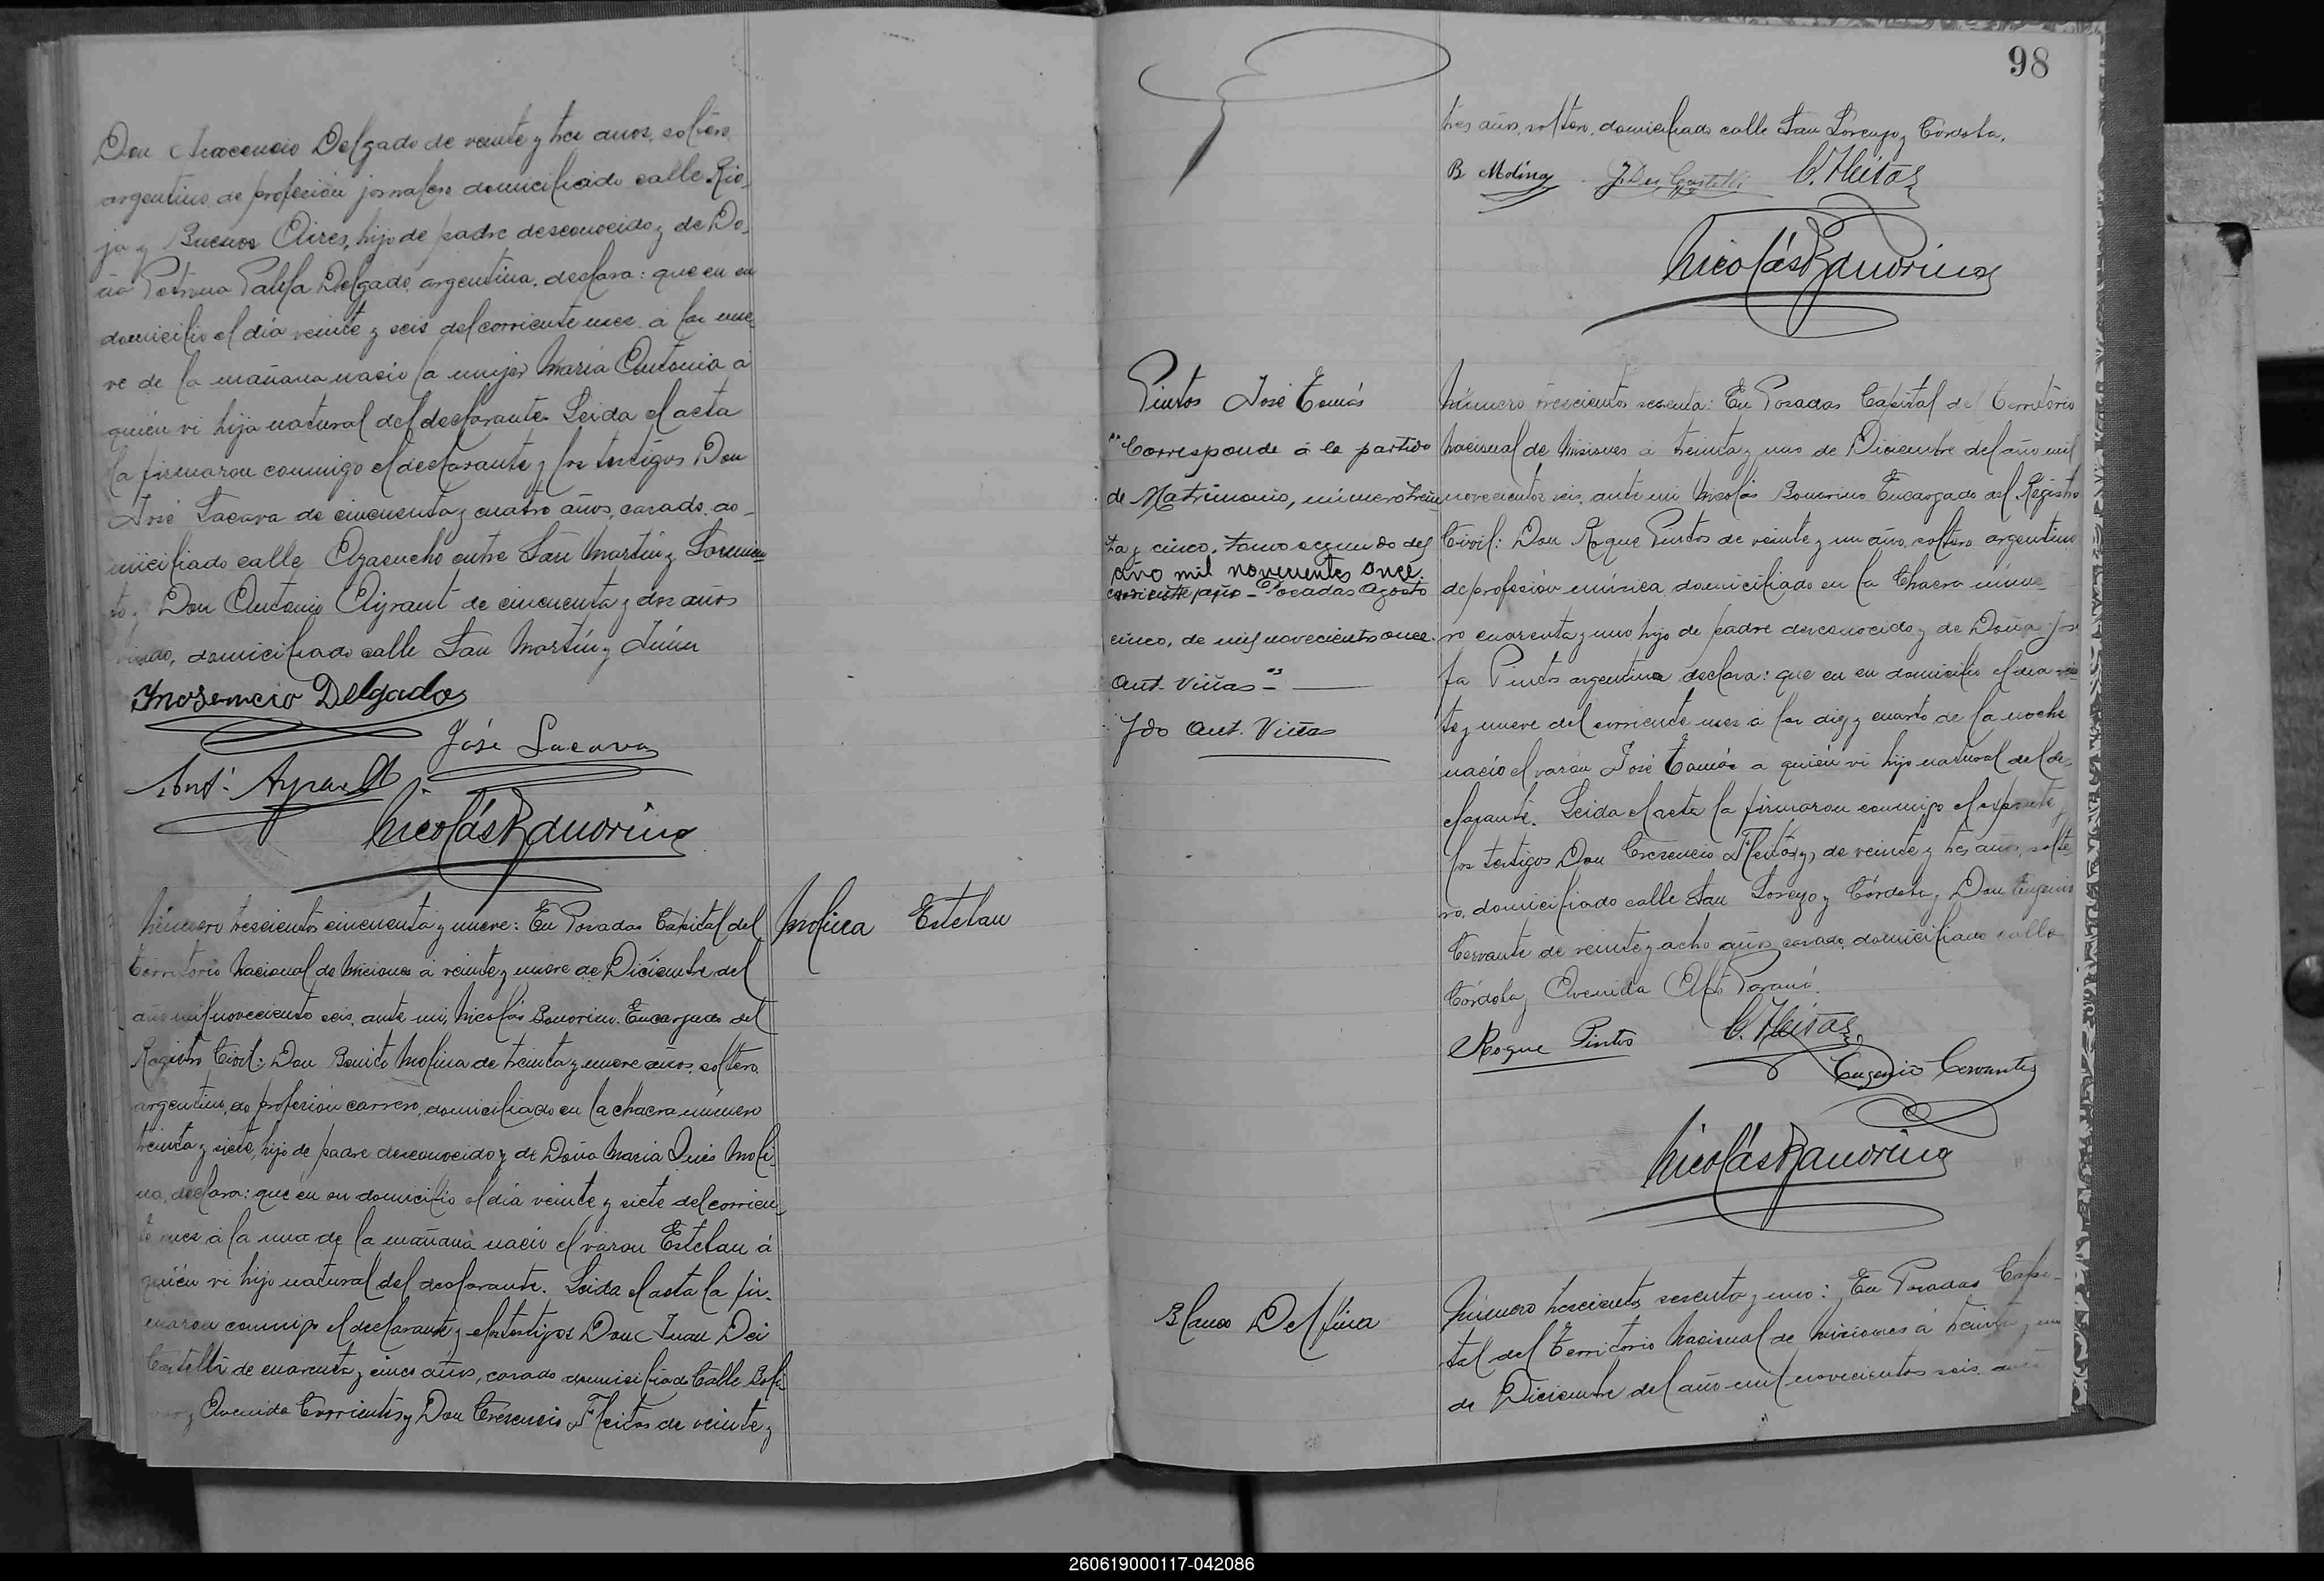 Don Inocencio Delgado de veinte y tres años, soltero
argentino, de profesión jornalero domiciliado calle Rio-
ja y Buenos Aires, hijo de padre desconocido y de Do-
ña Petrona Delgado, argentina, declara: que en su
domicilio el día veinte y seis del corriente mes a las nue-
ve de la mañana nació la mujer María Antonia a
quién vi hija natural del declarante. Leida el acta
la firmaron conmigo el declarante y los testigos Don
José Lacava de cincuenta y cuatro años, casado, do-
miciliado calle Ayacucho entre San Martín y Sarmien-
to y Don Antonio Ayrault de cincuenta y dos años
domiciliado calle San Martín y Junin
Inosencio Delgado
José Lacava
Ant. Ayrault
Nicolás Bonorino
Molina Esteban
Número trescientos cincuenta y nueve: En Posadas Capital del
Territorio Nacional de Misiones á veinte y nueve de Diciembre del
año mil novecientos seis, ante mi, Nicolás Bonorino Encargado del
Registro Civil: Don Benito Molina de treinta y nueve años, soltero
argentino, de profesion carrero, domiciliado en la chacra número
treinta y siete, hijo de padre desconocido y de Doña Maria Inés Moli-
na, declara: que en su domicilio el día veinte y siete del corrien-
te mes a la una de la mañana nació el varon Esteban á
quién vi hijo natural del declarante. Leida el acta la fir-
maron conmigo el declarante y los testigos Don Juan Dei
Castelli de cuarenta y cinco años, casado domiciliado Calle Boli-
var y Avenida Corrientes y Don Cresencio Fleitas de veinte y
98
tres años, soltero, domiciliado calle San Lorenzo y Córdoba.
B Molina J. Dei Castelli C. Fleitas
Nicolás Bonorino
Pintos José Tomás
"Corresponde á la partida
de Matrimonio, número trein
ta y cinco, tomo segundo del
año mil novecientos once.
corriente año - Posadas Agosto
cinco, de mil novecientos once.
Ant. Viñas"
Fdo Ant. Viñas
Número trescientos sesenta: En Posadas Capital del Territorio
Nacional de Misiones á treinta y uno de Diciembre del año mil
novecientos seis, ante mi Nicolás Bonorino Encargado del Registro
Civil: Don Roque Pintos de veinte y un año, soltero argentino
de profesión música, domiciliado en la Chacra núme-
ro cuarenta y uno, hijo de padre desconocido y de Doña Jose
fa Pintos argentina declara: que en su domicilio el dia vein
te y nueve del corriente mes á las diez y cuarto de la noche
nació el varón José Tomás a quién vi hijo natural del de-
clarante. Leida el acta la firmaron conmigo el exponente y
los testigos Don Cresencio Fleitas, de veinte y tres años, solte-
ro, domiciliado calle San Lorenzo y Córdoba y Don Eugenio
Cervante de veinte y ocho años casado, domiciliado calle
Córdoba y Avenida Alto Paraná.
Roque Pintos C. Fleitas
Eugenio Cervantes
Nicolás Bonorino
Blanco Delfina
Número trescientos sesenta y uno: En Posadas Capi-
tal del Territorio Nacional de Misiones á treinta y uno
de Diciembre del año mil novecientos seis, ante
260619000117-042086